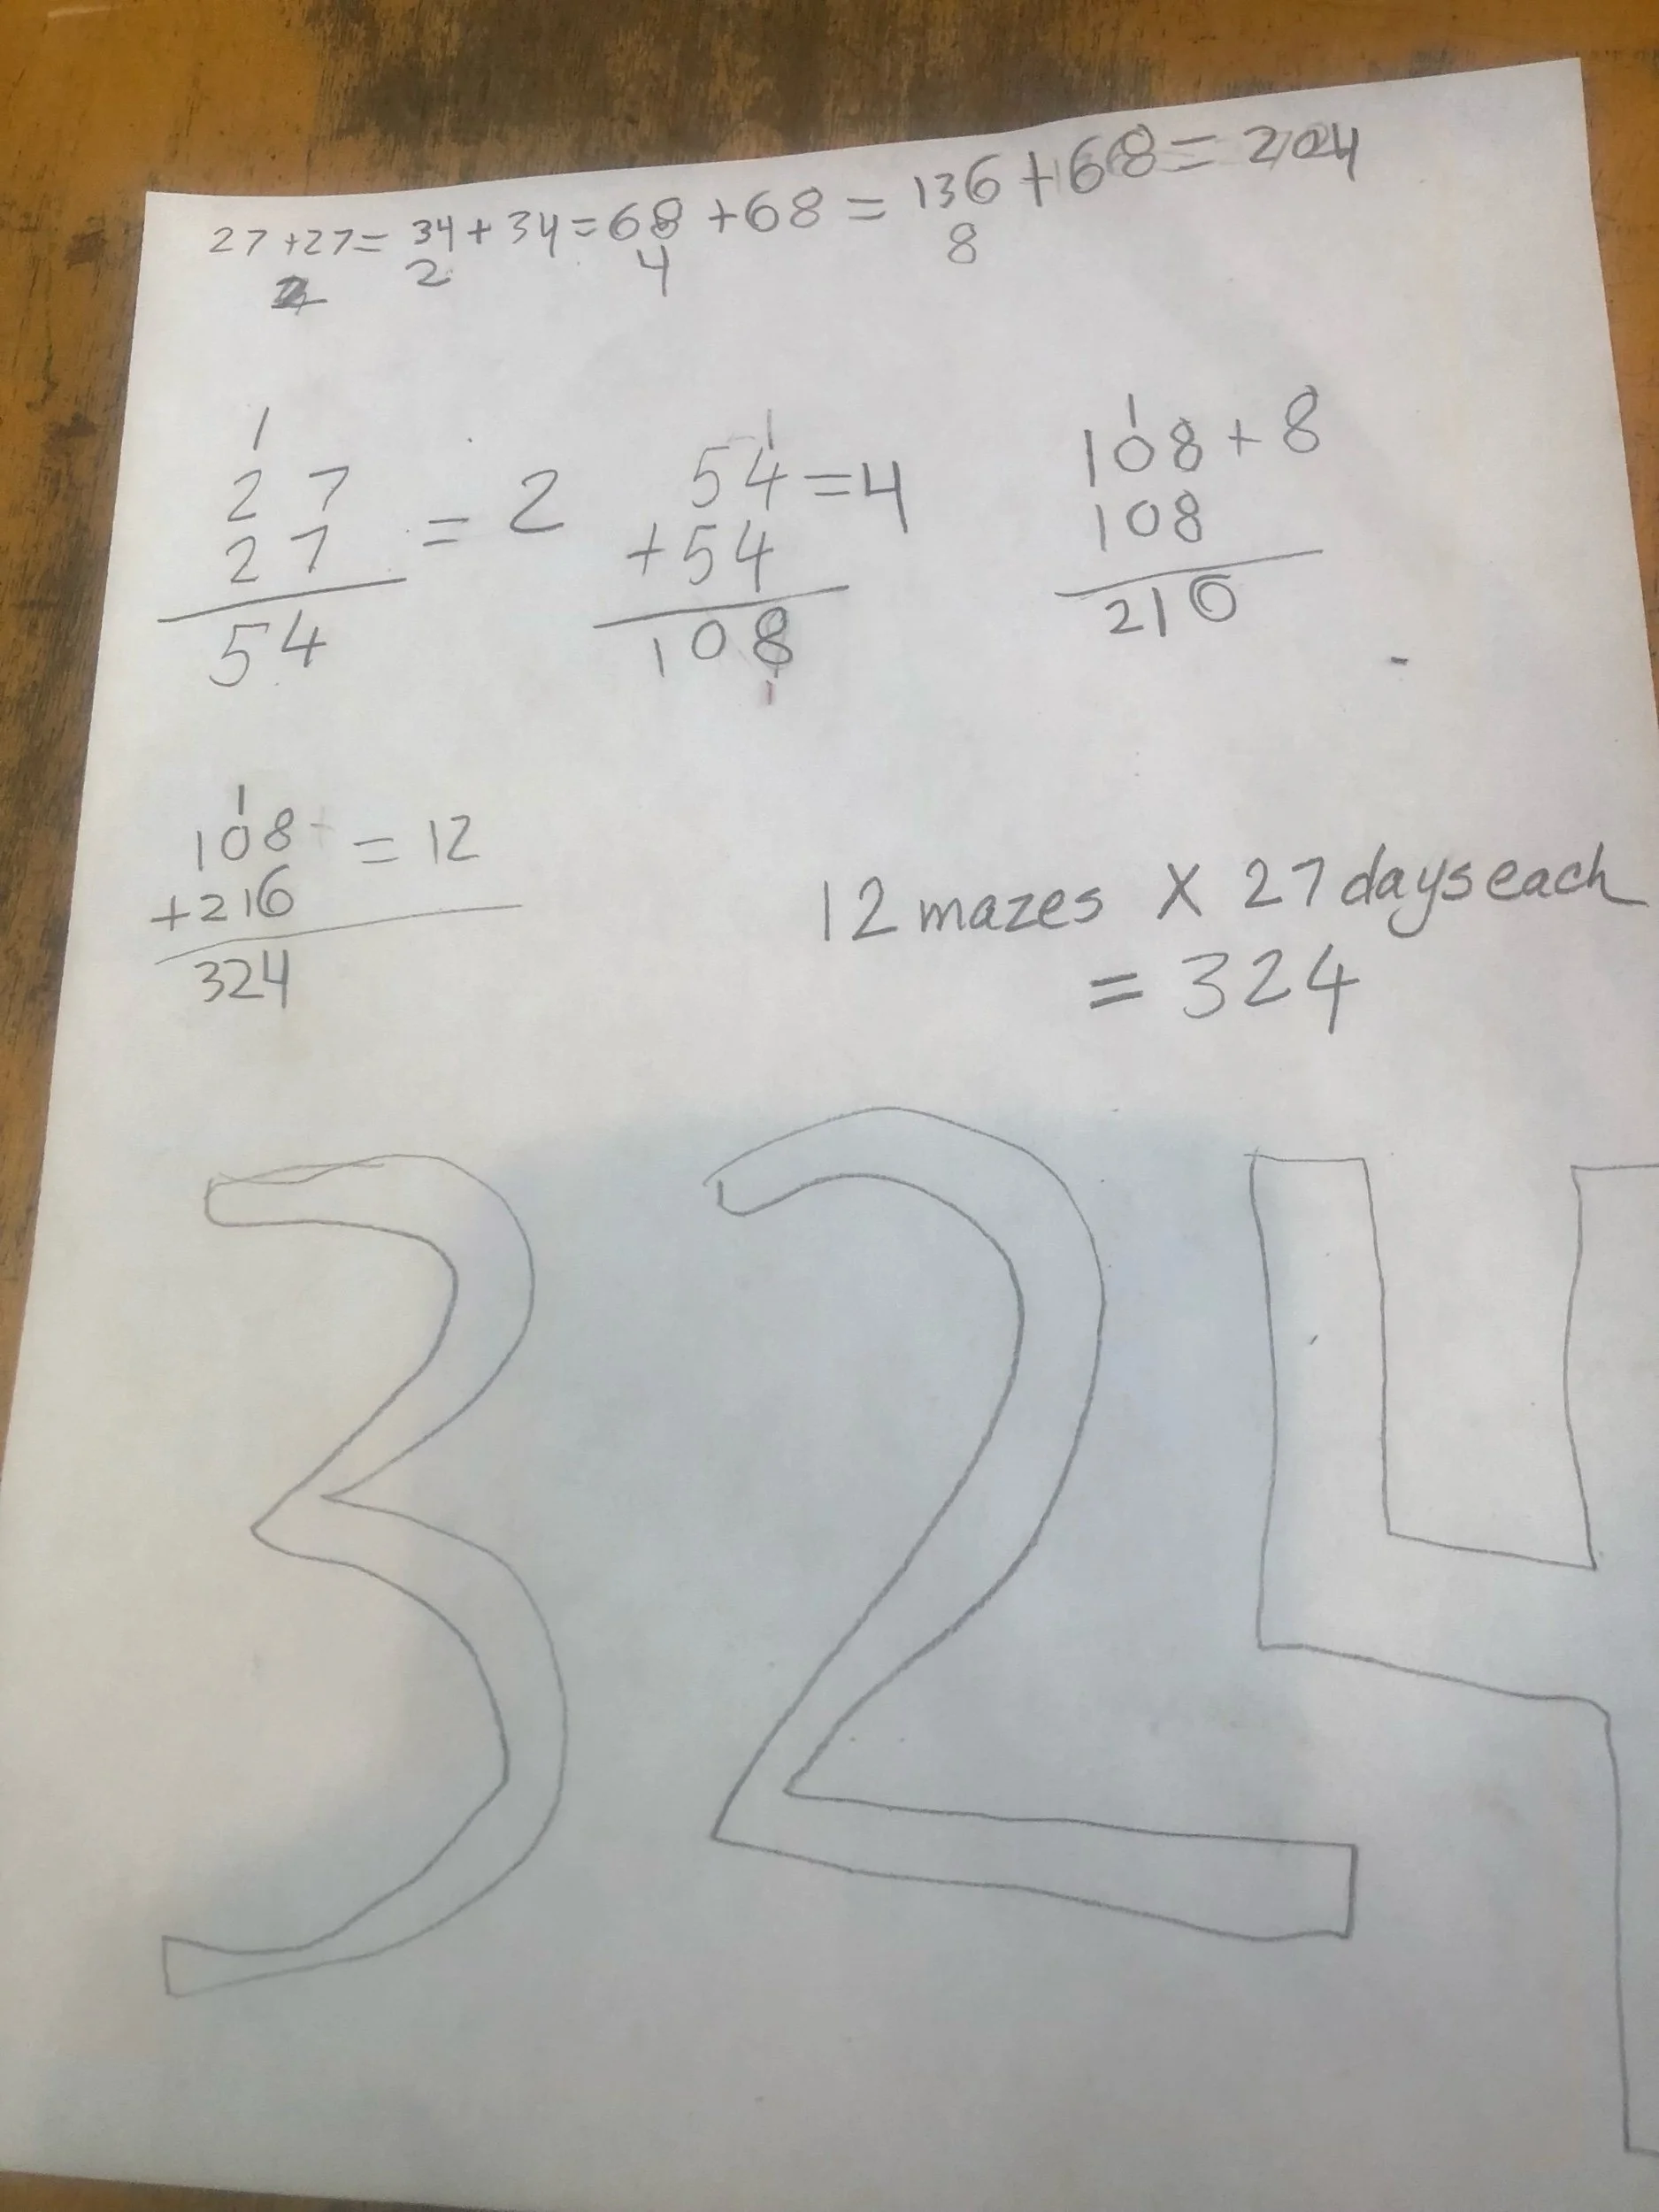 27 +27= 34+34=68+68=136+68=204
2 2 4 8
1
27
27
54
= 2
1
54=4
+54
108
1
1
108+8
108
216
1
108 = 12
+216
324
12 mazes X 27 days each
= 324
324